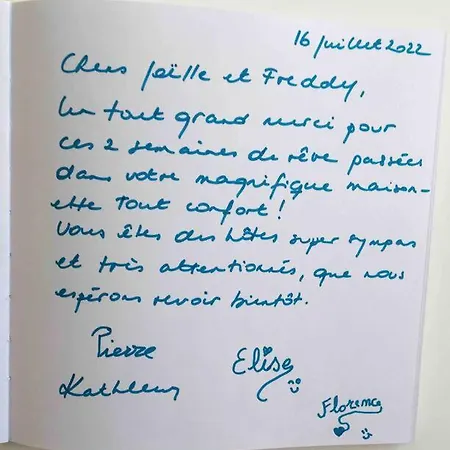 16 juillet 2022
Chers Joëlle et Freddy,
Un tout grand merci pour
ces 2 semaines de rêve passées
dans votre magnifique maison-
ette tout confort !
Vous êtes des hôtes super sympas
et très attentionnés, que nous
espérons revoir bientôt.
Pierre
Elise
Kathleen
Florence